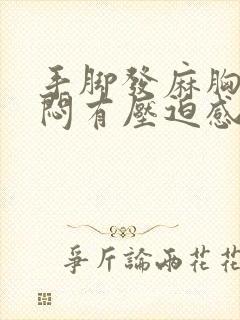 手脚發麻胸
悶有壓迫感
爭斤論兩花花